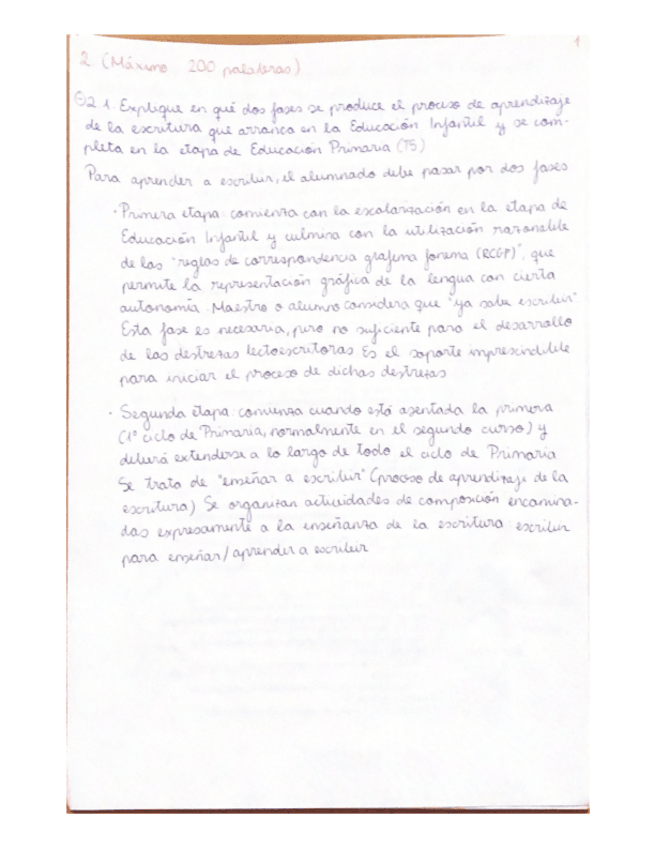 1
2 (Máximo 200 palabras)
2.1. Explique en qué dos fases se produce el proceso de aprendizaje
de la escritura que arranca en la Educación Infantil y se com-
pleta en la etapa de Educación Primaria (T5)
Para aprender a escribir, el alumnado debe pasar por dos fases
· Primera etapa: comienza con la escolarización en la etapa de
Educación Infantil y culmina con la utilización razonable
de las "reglas de correspondencia grafema fonema (RCGF)", que
permite la representación gráfica de la lengua con cierta
autonomía. Maestro o alumno considera que "ya sabe escribir"
Esta fase es necesaria, pero no suficiente para el desarrollo
de las destrezas lectoescritoras. Es el soporte imprescindible
para iniciar el proceso de dichas destrezas
· Segunda etapa: comienza cuando está asentada la primera
(1º ciclo de Primaria, normalmente en el segundo curso) y
deberá extenderse a lo largo de todo el ciclo de Primaria
Se trata de "enseñar a escribir" (proceso de aprendizaje de la
escritura) Se organizan actividades de composición encamina-
das expresamente a la enseñanza de la escritura: escribir
para enseñar/aprender a escribir